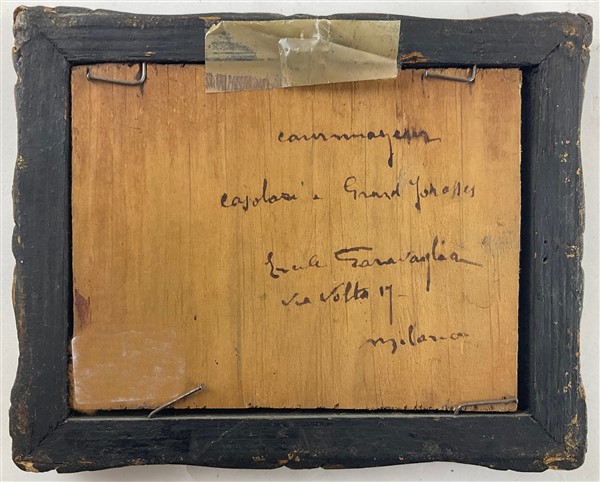 courmayeur
casolari a Grand Johasses
Ercole Garavaglia
via Volta 17
milano